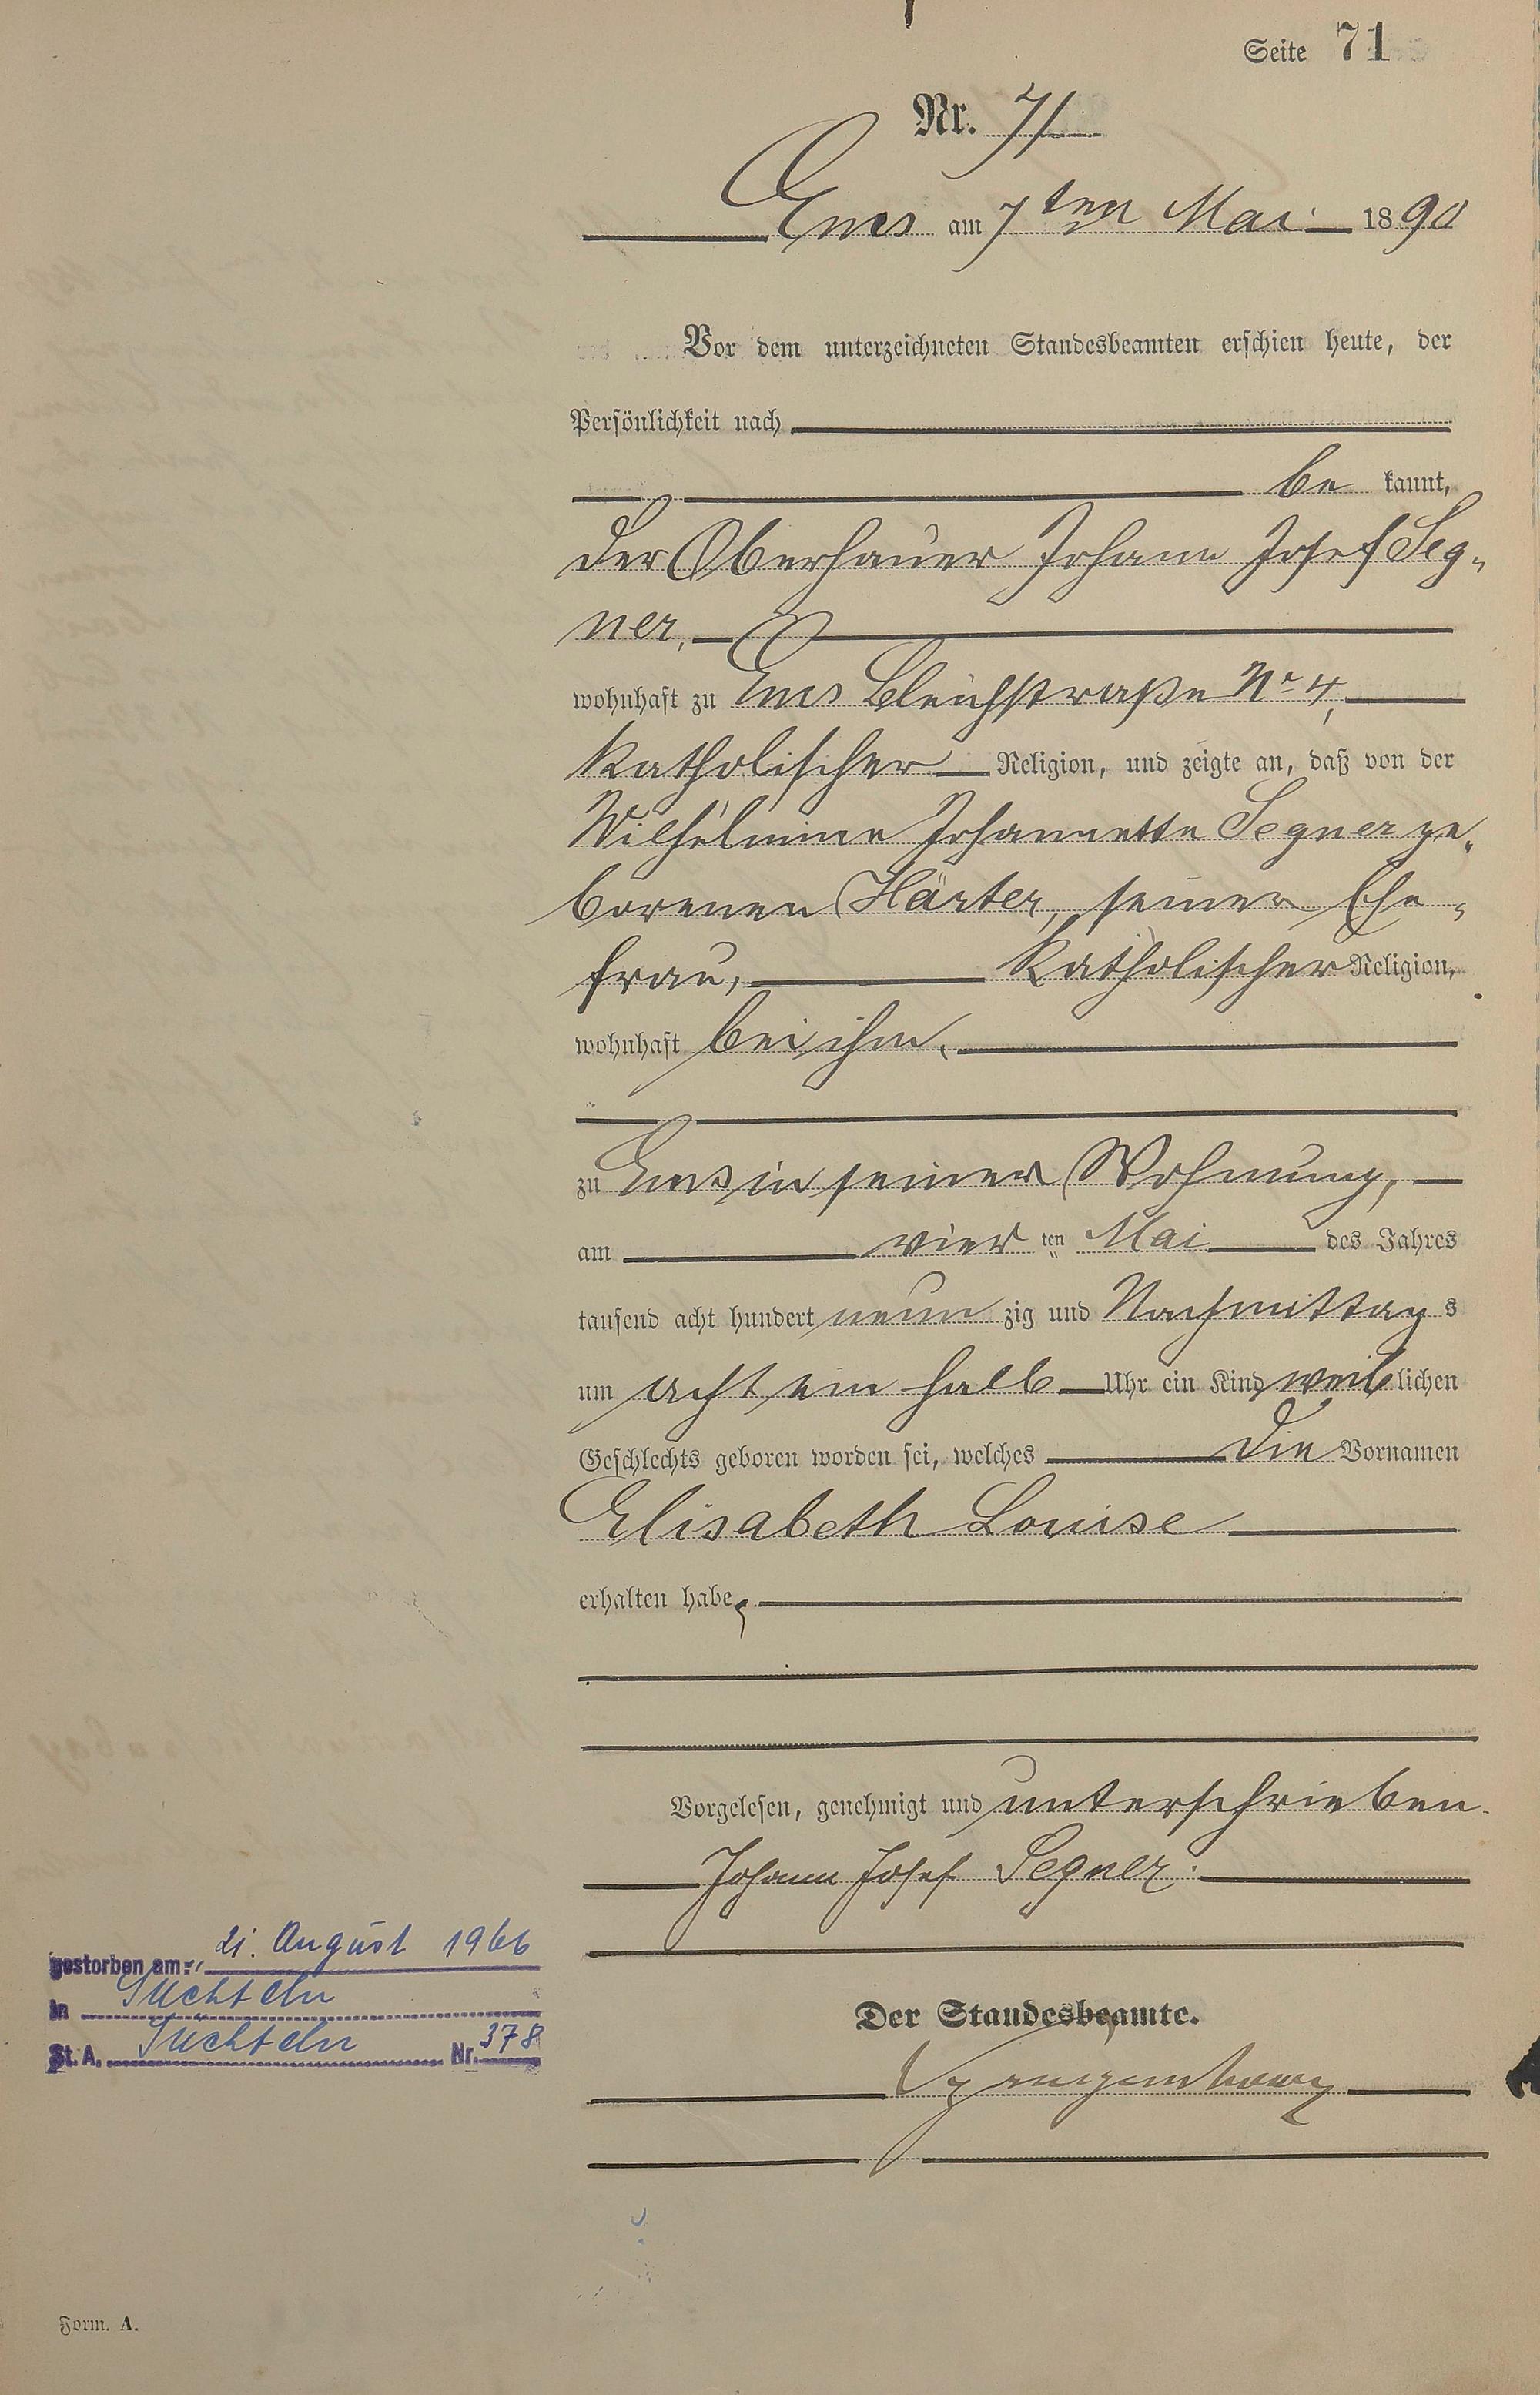 Seite 71
Nr. 71
Ems am 7ten Mai 1890
Vor dem unterzeichneten Standesbeamten erschien heute, der
Persönlichkeit nach
be kannt,
der Oberhauer Johann Josef Seg-
ner,
wohnhaft zu Ems Bleichstraße No 4,
katholischer Religion, und zeigte an, daß von der
Wilhelmine Johannette Segner ge-
borenen Härter, seiner Ehe-
frau, katholischer Religion,
wohnhaft bei ihm,
zu Ems in seiner Wohnung,
am vier ten Mai des Jahres
tausend acht hundert neun zig und Nachmittag s
um acht ein halb Uhr ein Kind weib lichen
Geschlechts geboren worden sei, welches die Vornamen
Elisabeth Louise
erhalten habe,
Vorgelesen, genehmigt und unterschrieben.
Johann Josef Segner.
gestorben am: 21. August 1966
in Süchteln
St. A. Süchteln Nr. 378
Der Standesbeamte.
Form. A.